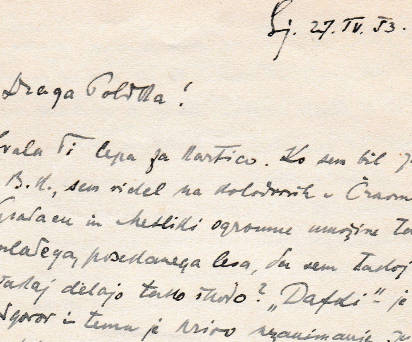 Lj. 27. IV. 53.
Draga Poldka!
hvala Ti lepa za kartico. Ko sem bil
B. K., sem videl na kolodvorih v Črnom
Gradacu in Metliki ogromne množine
mladega, posekanega lesa, da sem
delajo tako škodo? „Dafki" je
govor in temu je krivo nezanimanje